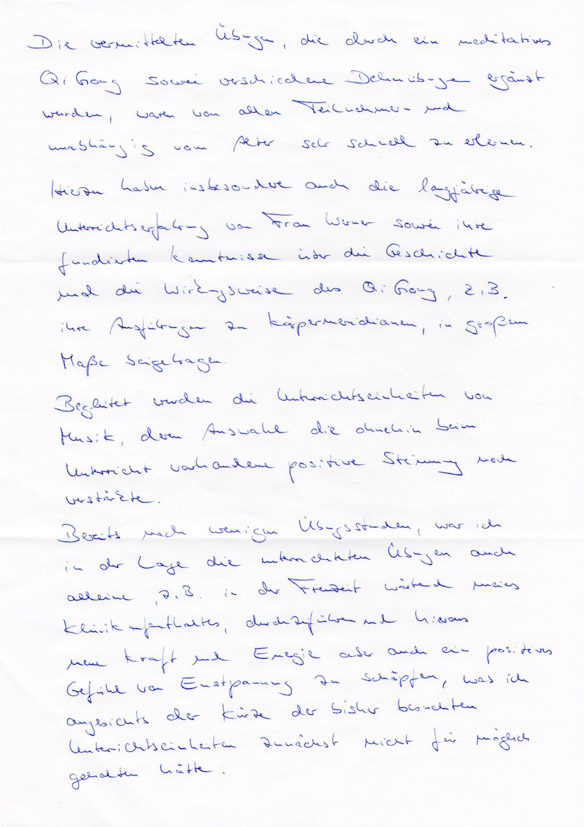 Die vermittelten Übungen, die durch ein meditatives
Qi Gong sowie verschiedene Dehnübungen ergänzt
wurden, waren von allen Teilnehmern und
unabhängig vom Alter sehr schnell zu erlernen.
Hierzu haben insbesondere auch die langjährige
Unterrichtserfahrung von Frau Werner sowie ihre
fundierten Kenntnisse über die Geschichte
und die Wirkungsweise des Qi Gong, z.B.
ihre Ausführungen zu Körpermeridianen, in großem
Maße beigetragen.
Begleitet werden die Unterrichtseinheiten von
Musik, deren Auswahl die ohnehin beim
Unterricht vorhandene positive Stimmung noch
verstärkte.
Bereits nach wenigen Übungsstunden, war ich
in der Lage die unterrichteten Übungen auch
alleine, z.B. in der Freizeit während meines
Klinikaufenthaltes, durchzuführen und hieraus
neue Kraft und Energie aber auch ein positives
Gefühl von Entspannung zu schöpfen, was ich
angesichts der Kürze der bisher besuchten
Unterrichtseinheiten zunächst nicht für möglich
gehalten hätte.